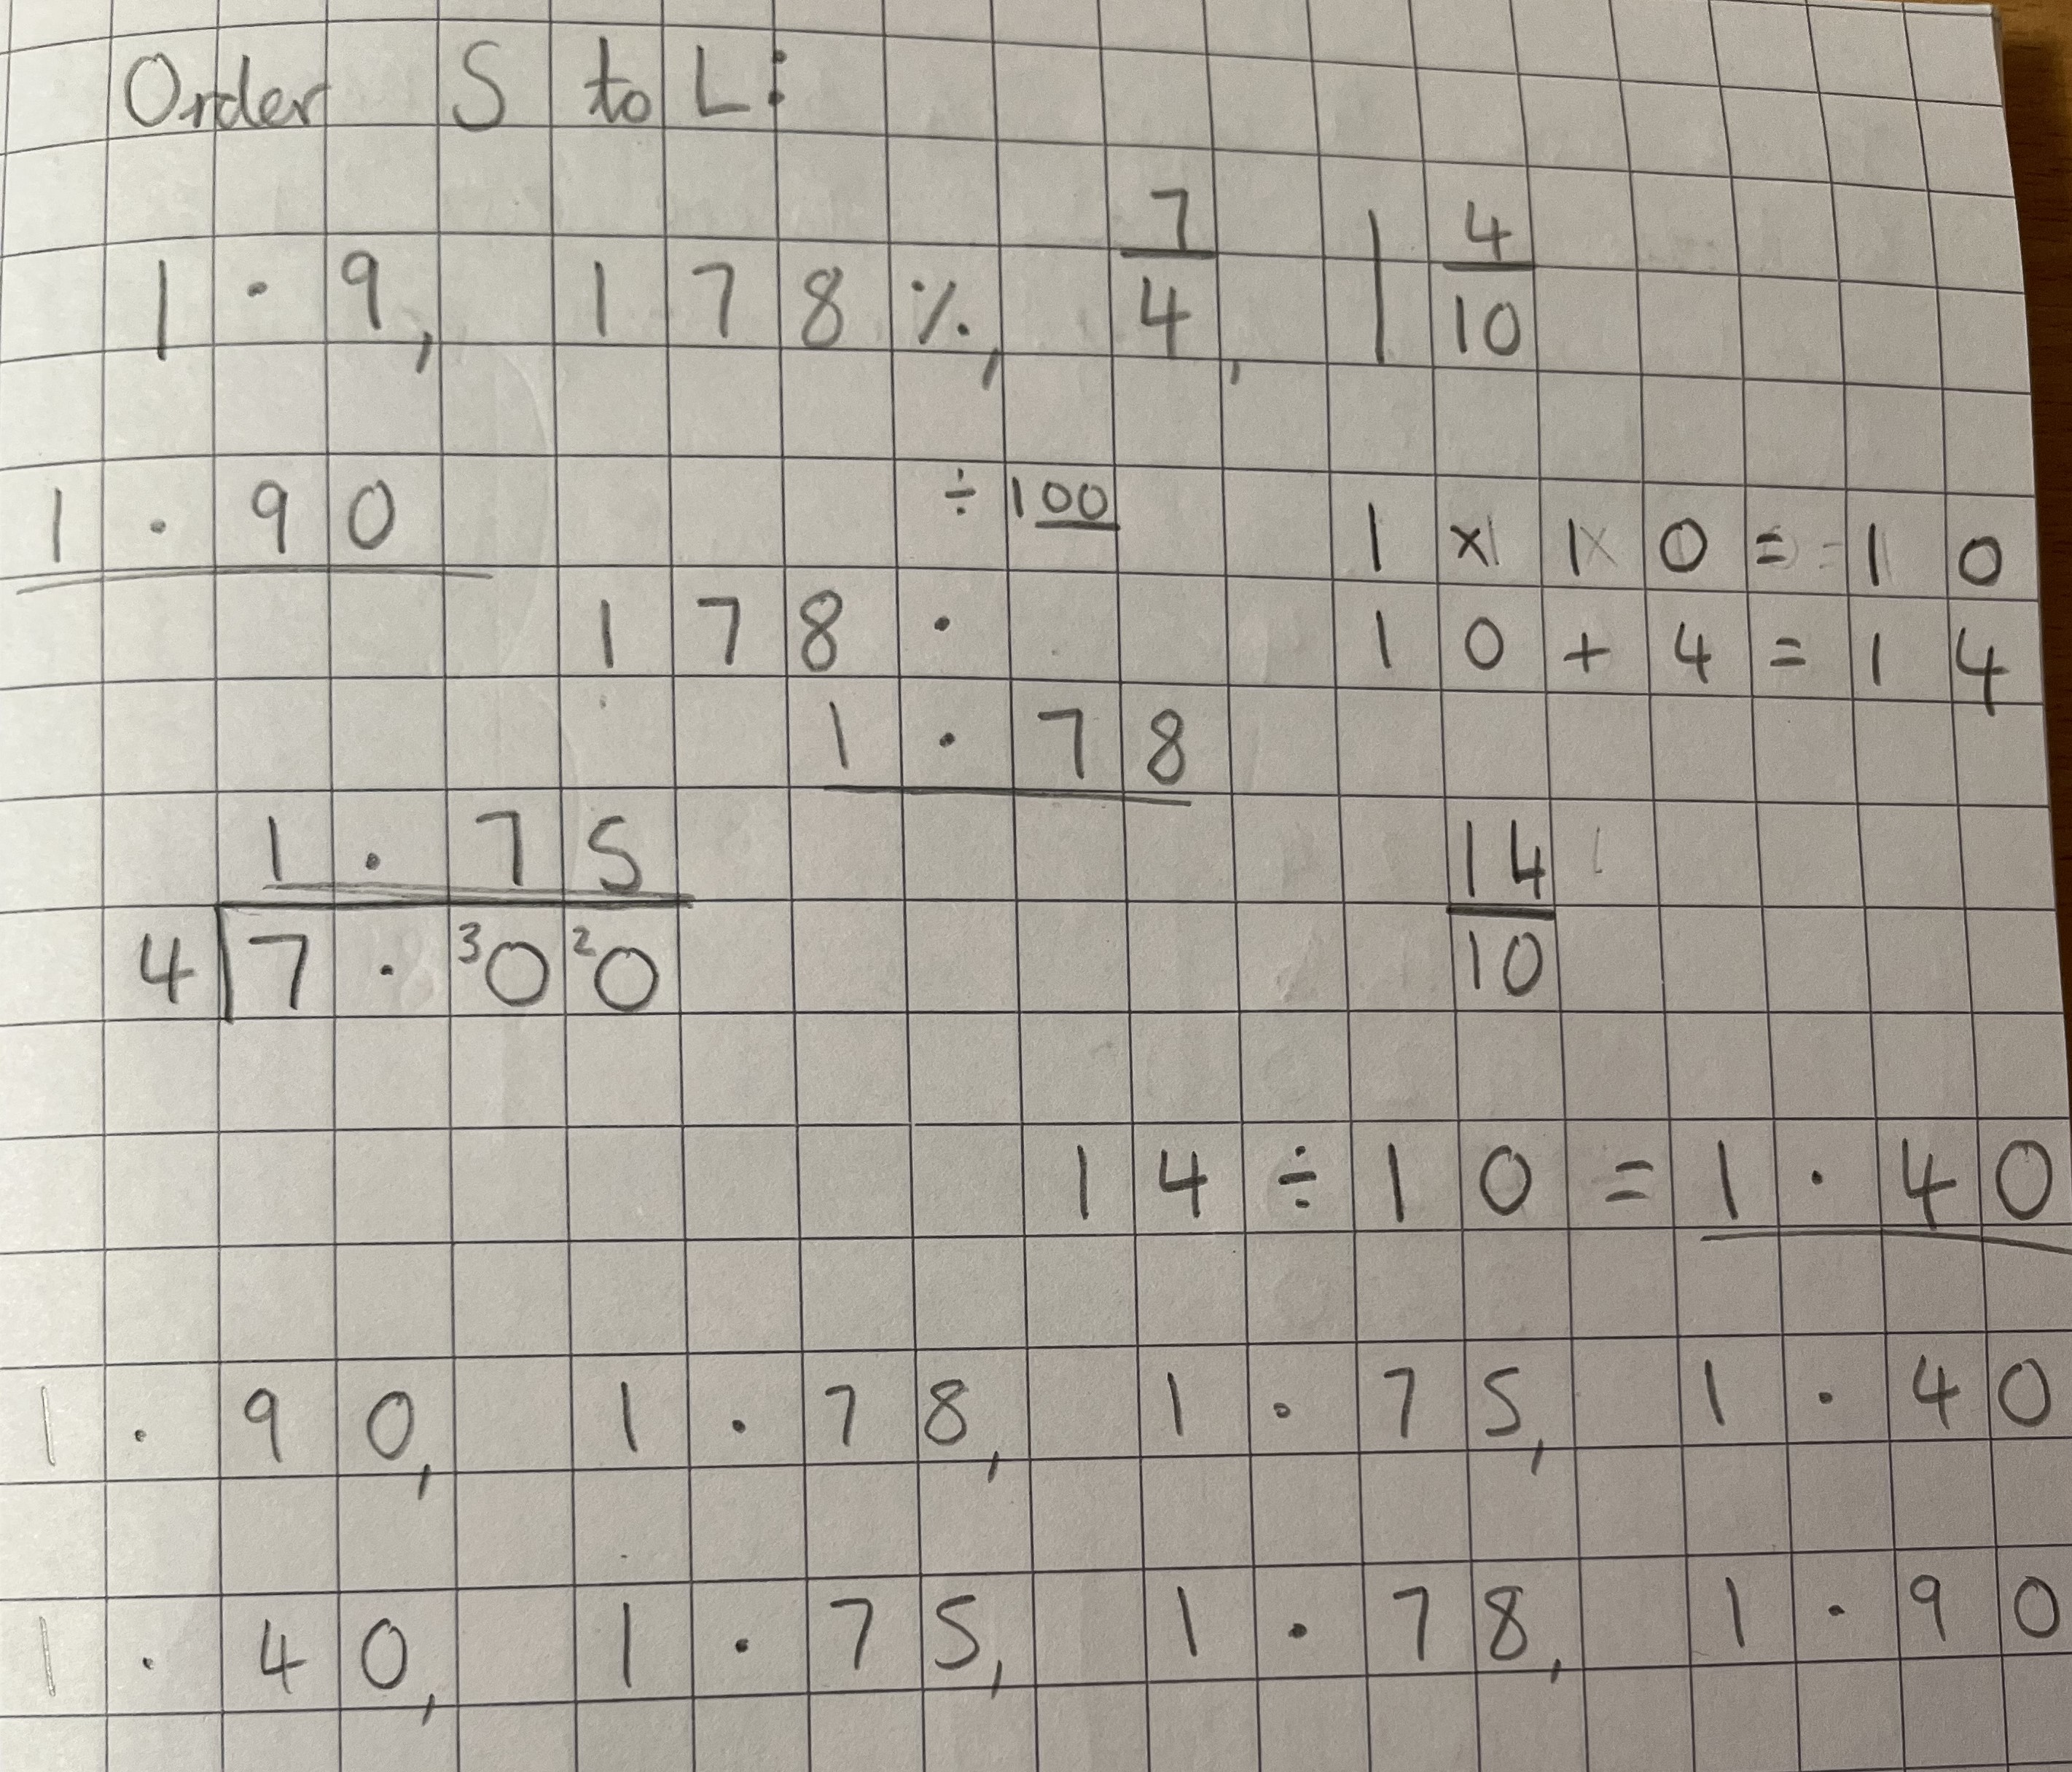 Order S to L:
1.9, 178%, 7/4, 1 4/10
1.90
÷100
178.
1.78
1 x 10 = 10
10 + 4 = 14
14/10
1.75
4 7.³0²0
14 ÷ 10 = 1.40
1.90, 1.78, 1.75, 1.40
1.40, 1.75, 1.78, 1.90